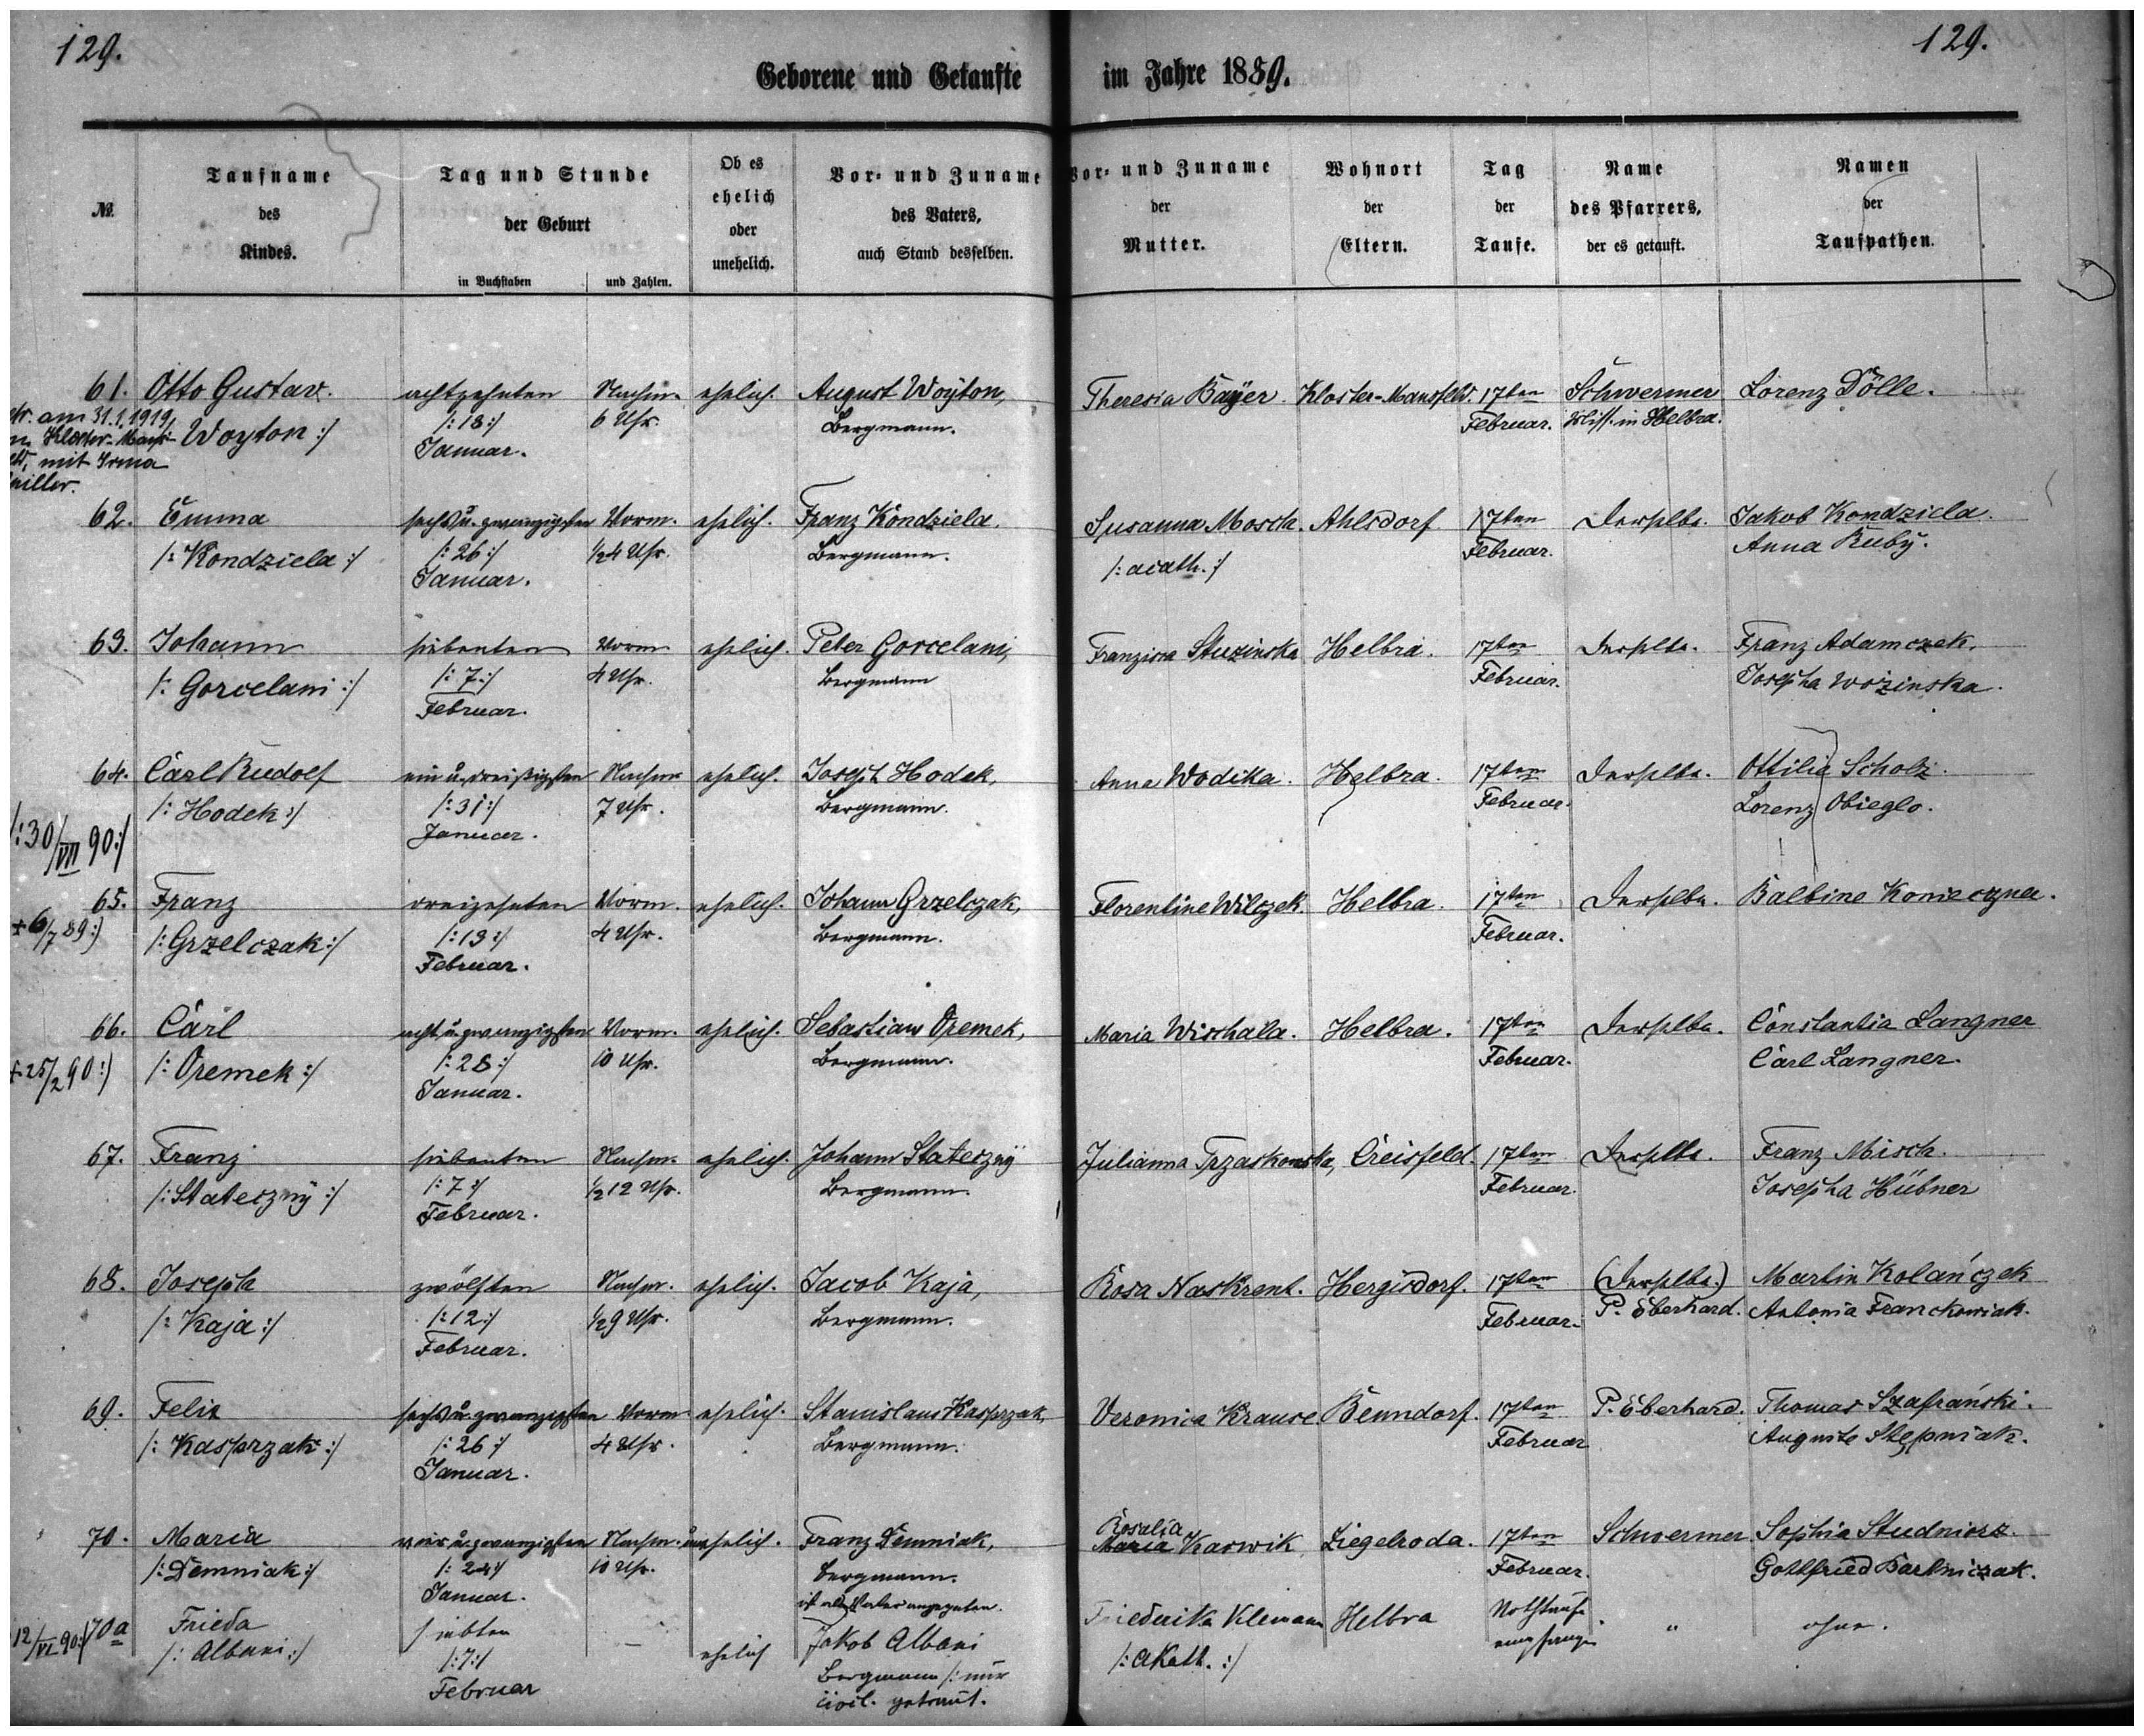 129.
129.
Geborene und Getaufte im Jahre 1889.
№.
Taufname des Kindes.
Tag und Stunde der Geburt
in Buchstaben
und Zahlen.
Ob es ehelich oder unehelich.
Vor- und Zuname des Vaters, auch Stand desselben.
Vor- und Zuname der Mutter.
Wohnort der Eltern.
Tag der Taufe.
Name des Pfarrers, der es getauft.
Namen der Taufpathen.
61. Otto Gustav. achtzehnten Nachm. ehelich. August Woyton, Theresia Bayer. Kloster-Mansfeld. 17ten Schwermer Lorenz Dölle.
am 31.1.1919,
Woyton :/ /:18:/ 6 Uhr. Bergmann. Februar. Miss. in Helbra.
Kloster-Mans-
Januar.
mit Irma
62. Emma sechsu.zwanzigsten Vorm. ehelich. Franz Kondziela. Susanna Mosch. Ahlsdorf 17ten Derselbe. Jakob Kondziela.
/: Kondziela :/ /:26:/ ½4 Uhr. Bergmann. /: acath. :/ Februar. Anna Ruby.
Januar.
63. Johann siebenten Vorm. ehelich. Peter Gorcelani, Franziska Stuzinska Helbra. 17ten Derselbe. Franz Adamczek.
/: Gorcelani :/ /:7:/ 4 Uhr. Bergmann Februar. Josepha Wozinska.
Februar.
64. Carl Rudolf ein u. dreißigsten Nachm. ehelich. Joseph Hodek, Anna Wodika. Helbra. 17ten Derselbe. Ottilie Scholz.
/: Hodek :/ /:31:/ 7 Uhr. Bergmann. Februar. Lorenz Obieglo.
/:30/VII 90:/ Januar.
65. Franz dreizehnten Vorm. ehelich. Johann Grzelczak, Florentine Wilczek. Helbra. 17ten Derselbe. Balbine Konieczna.
+6/7 89:) /: Grzelczak :/ /:13:/ 4 Uhr. Bergmann. Februar.
Februar.
66. Carl acht u. zwanzigsten Vorm. ehelich. Sebastian Oremek, Maria Wischala. Helbra. 17ten Derselbe. Constantia Langner
+25/2 90:) /: Oremek :/ /:28:/ 10 Uhr. Bergmann. Februar. Carl Langner.
Januar.
67. Franz siebenten Nachm. ehelich. Johann Stateczny Julianna Trzaskowska, Creisfeld. 17ten Derselbe. Franz Misch.
/: Stateczny :/ /:7:/ ½12 Uhr. Bergmann. Februar. Josepha Hübner
Februar.
68. Joseph zwölften Nachm. ehelich. Jacob Kaja, Rosa Naskrent. Hergisdorf. 17ten (Derselbe.) Martin Kolańczek
/: Kaja :/ /:12:/ ½9 Uhr. Bergmann. Februar. P. Eberhard. Antonia Franckowiak.
Februar.
69. Felix sechs u. zwanzigsten Vorm. ehelich. Stanislaus Kasprzak, Veronica Krause Benndorf. 17ten P. Eberhard. Thomas Szafrański.
/: Kasprzak :/ /:26:/ 4 Uhr. Bergmann. Februar Auguste Stępniak.
Januar.
70. Maria vier u. zwanzigsten Nachm. unehelich. Franz Demniak, Rosalia Maria Karwik, Ziegelroda. 17ten Schwermer. Sophia Studniorz.
/: Demniak :/ /:24:/ 10 Uhr. Bergmann. Februar. Gottfried Bartniczak.
Januar. ist als Vater angegeben.
12/VI 90:/ 70a Frieda siebten – ehelich Jakob Albani Friederika Klemann Helbra Nothtaufe empfangen " ohne.
/: Albani :/ /:7:/ Bergmann /: nur /: aKath. :/
Februar civil. getraut.